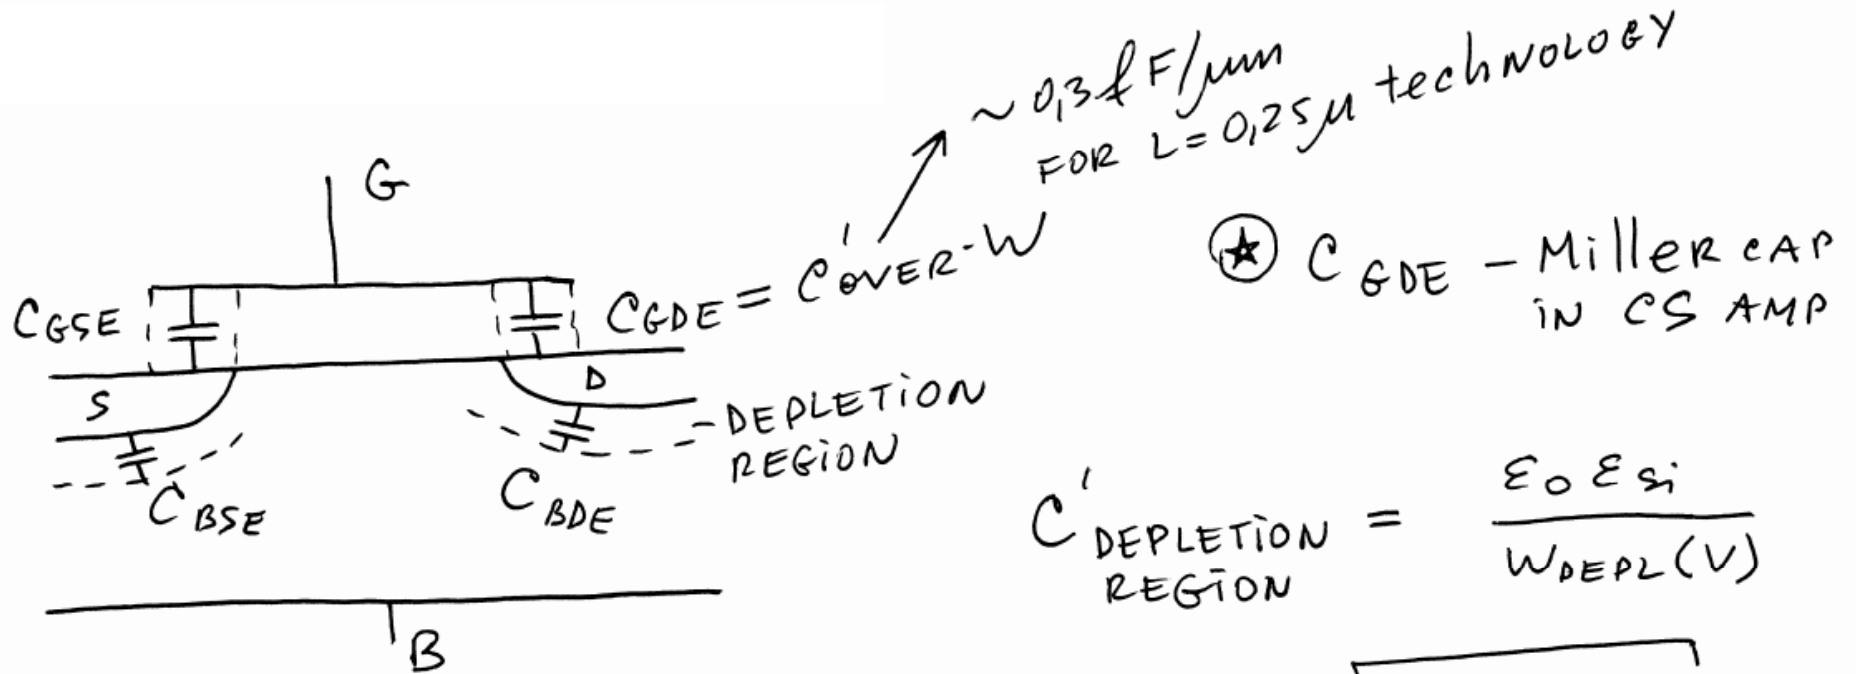 ~ 0,3 fF/μm
FOR L = 0,25μ technology
G
C_GSE
C_GDE = C'OVER·W
★ C_GDE – Miller CAP
IN CS AMP
S
D
– DEPLETION
REGION
C_BSE
C_BDE
C'_DEPLETION REGION = ε₀ ε_si / W_DEPL(V)
B